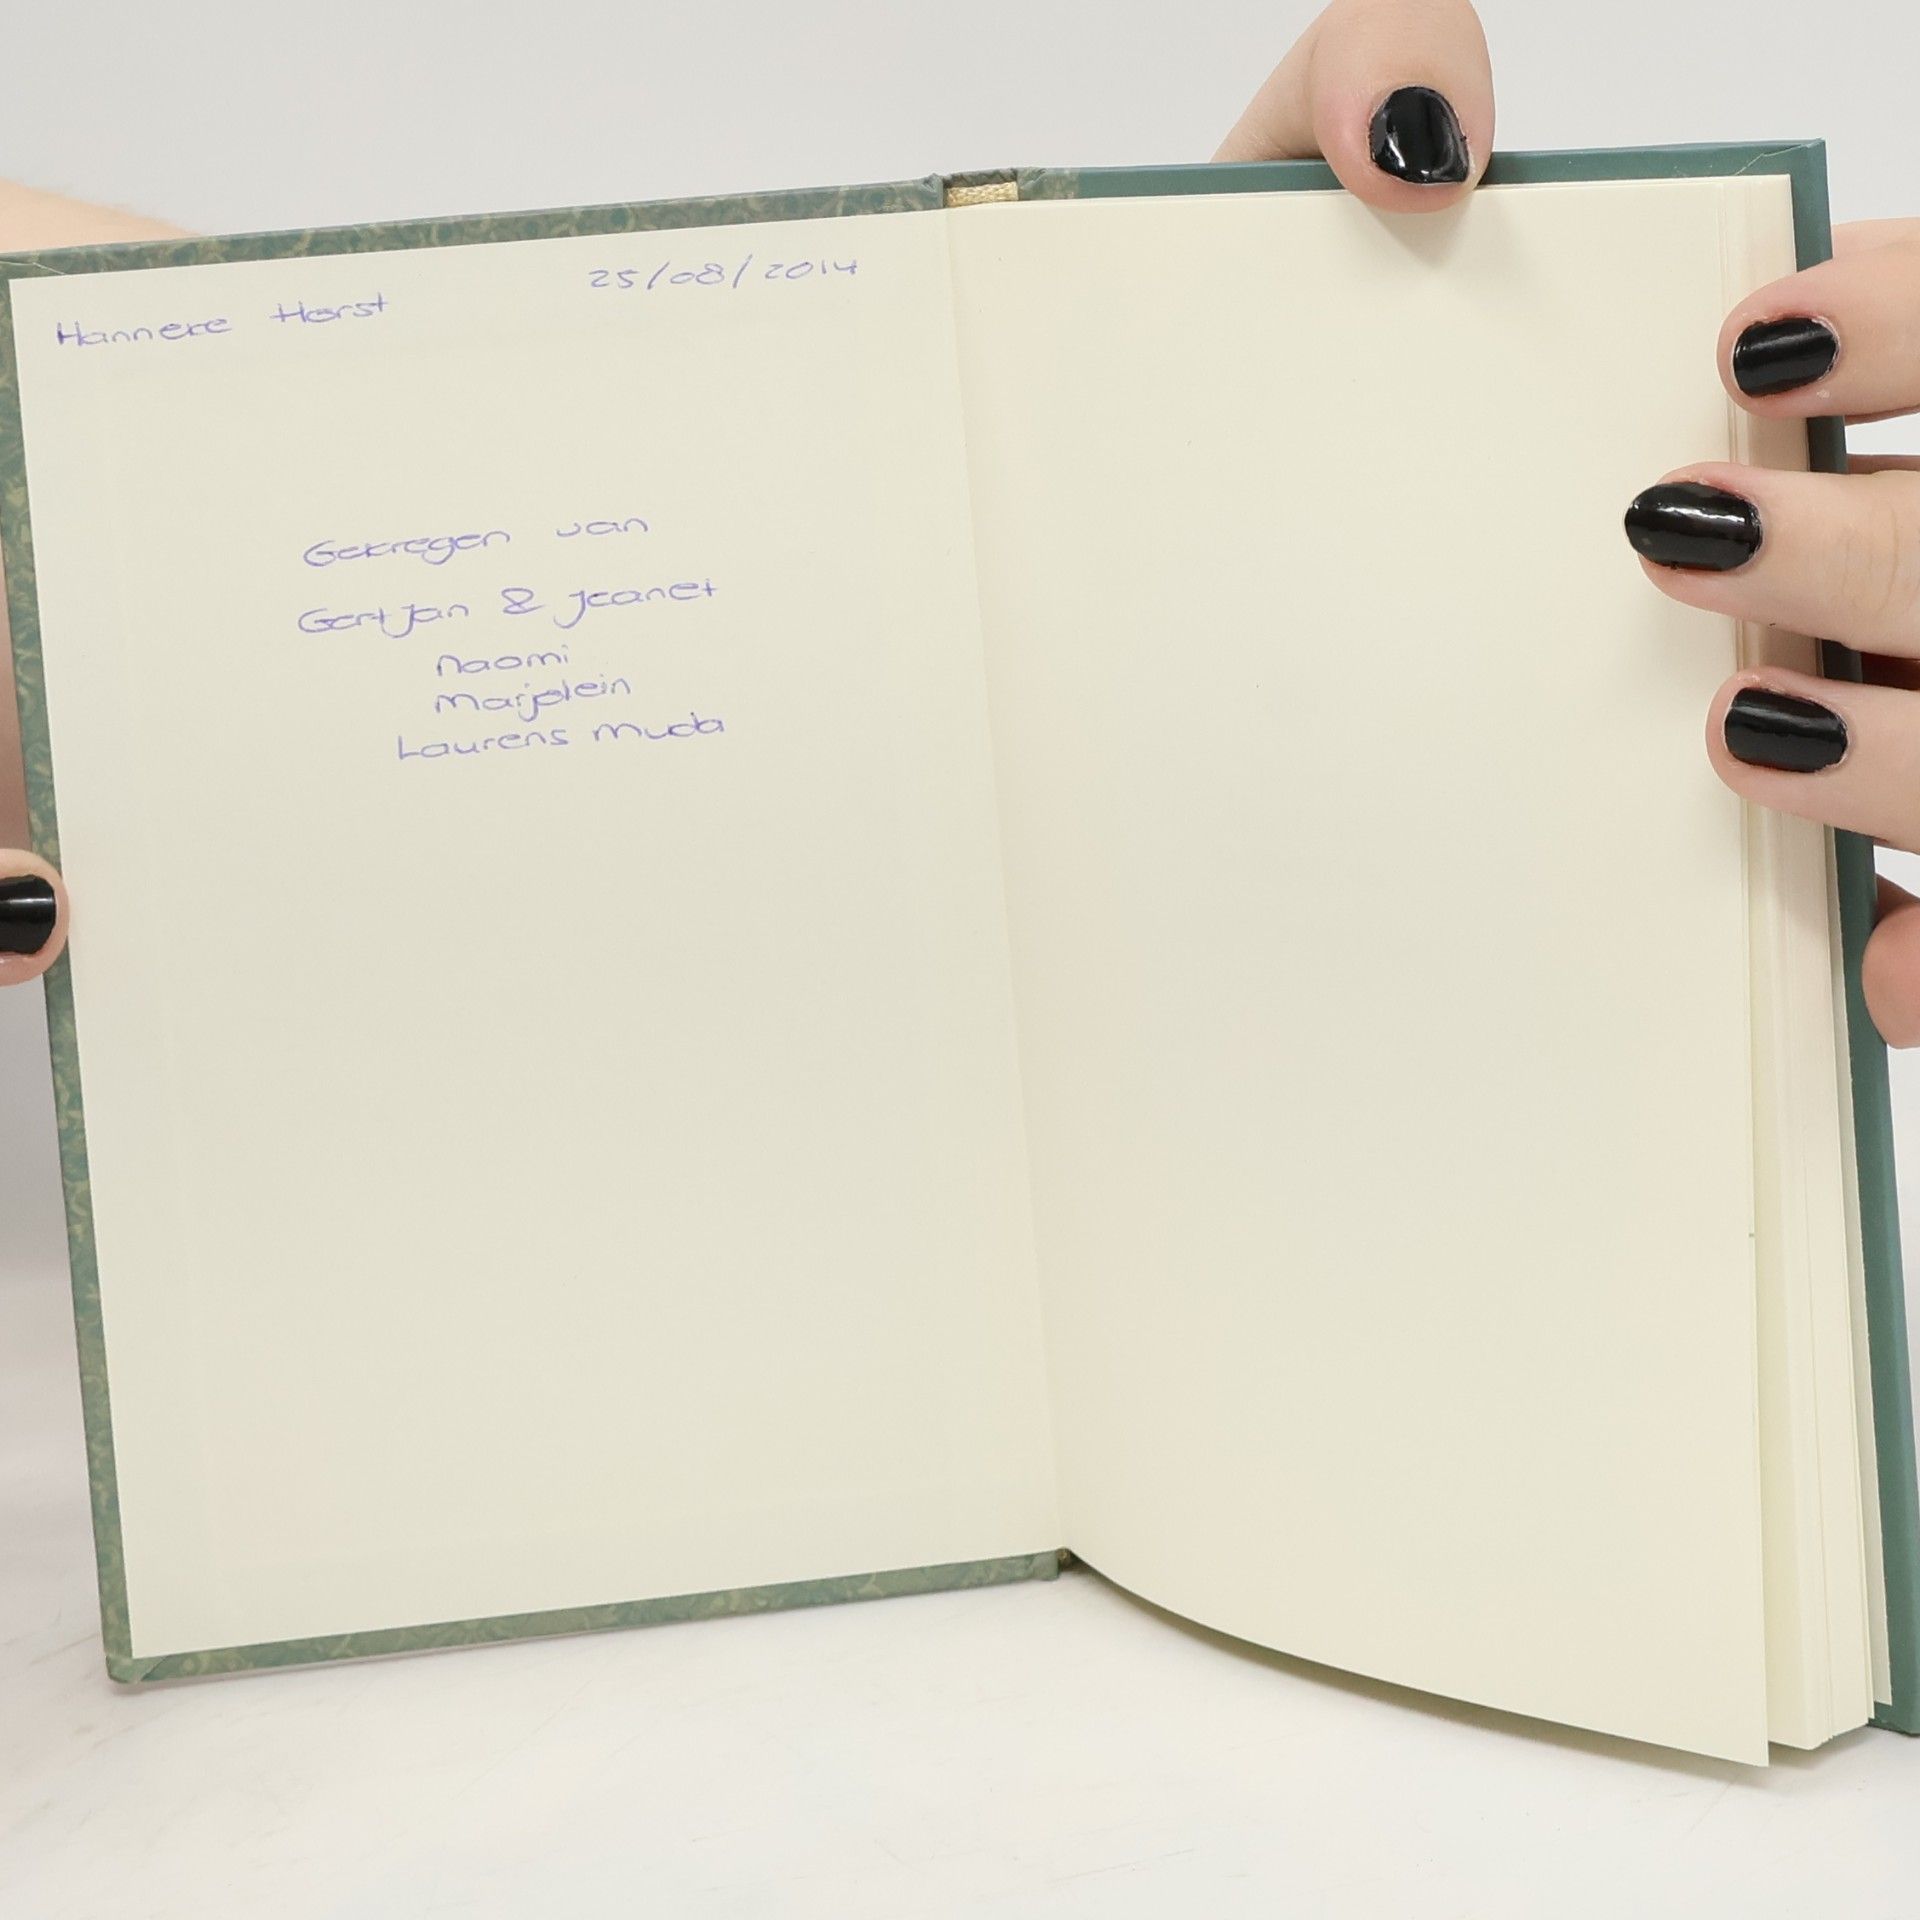 Hanneke Horst 25/08/2014
Gekregen van
Gertjan & Jeanet
Naomi
Marjolein
Laurens Muda